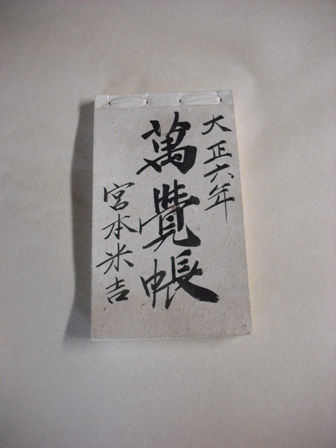 大正六年
萬覺帳
宮本米吉